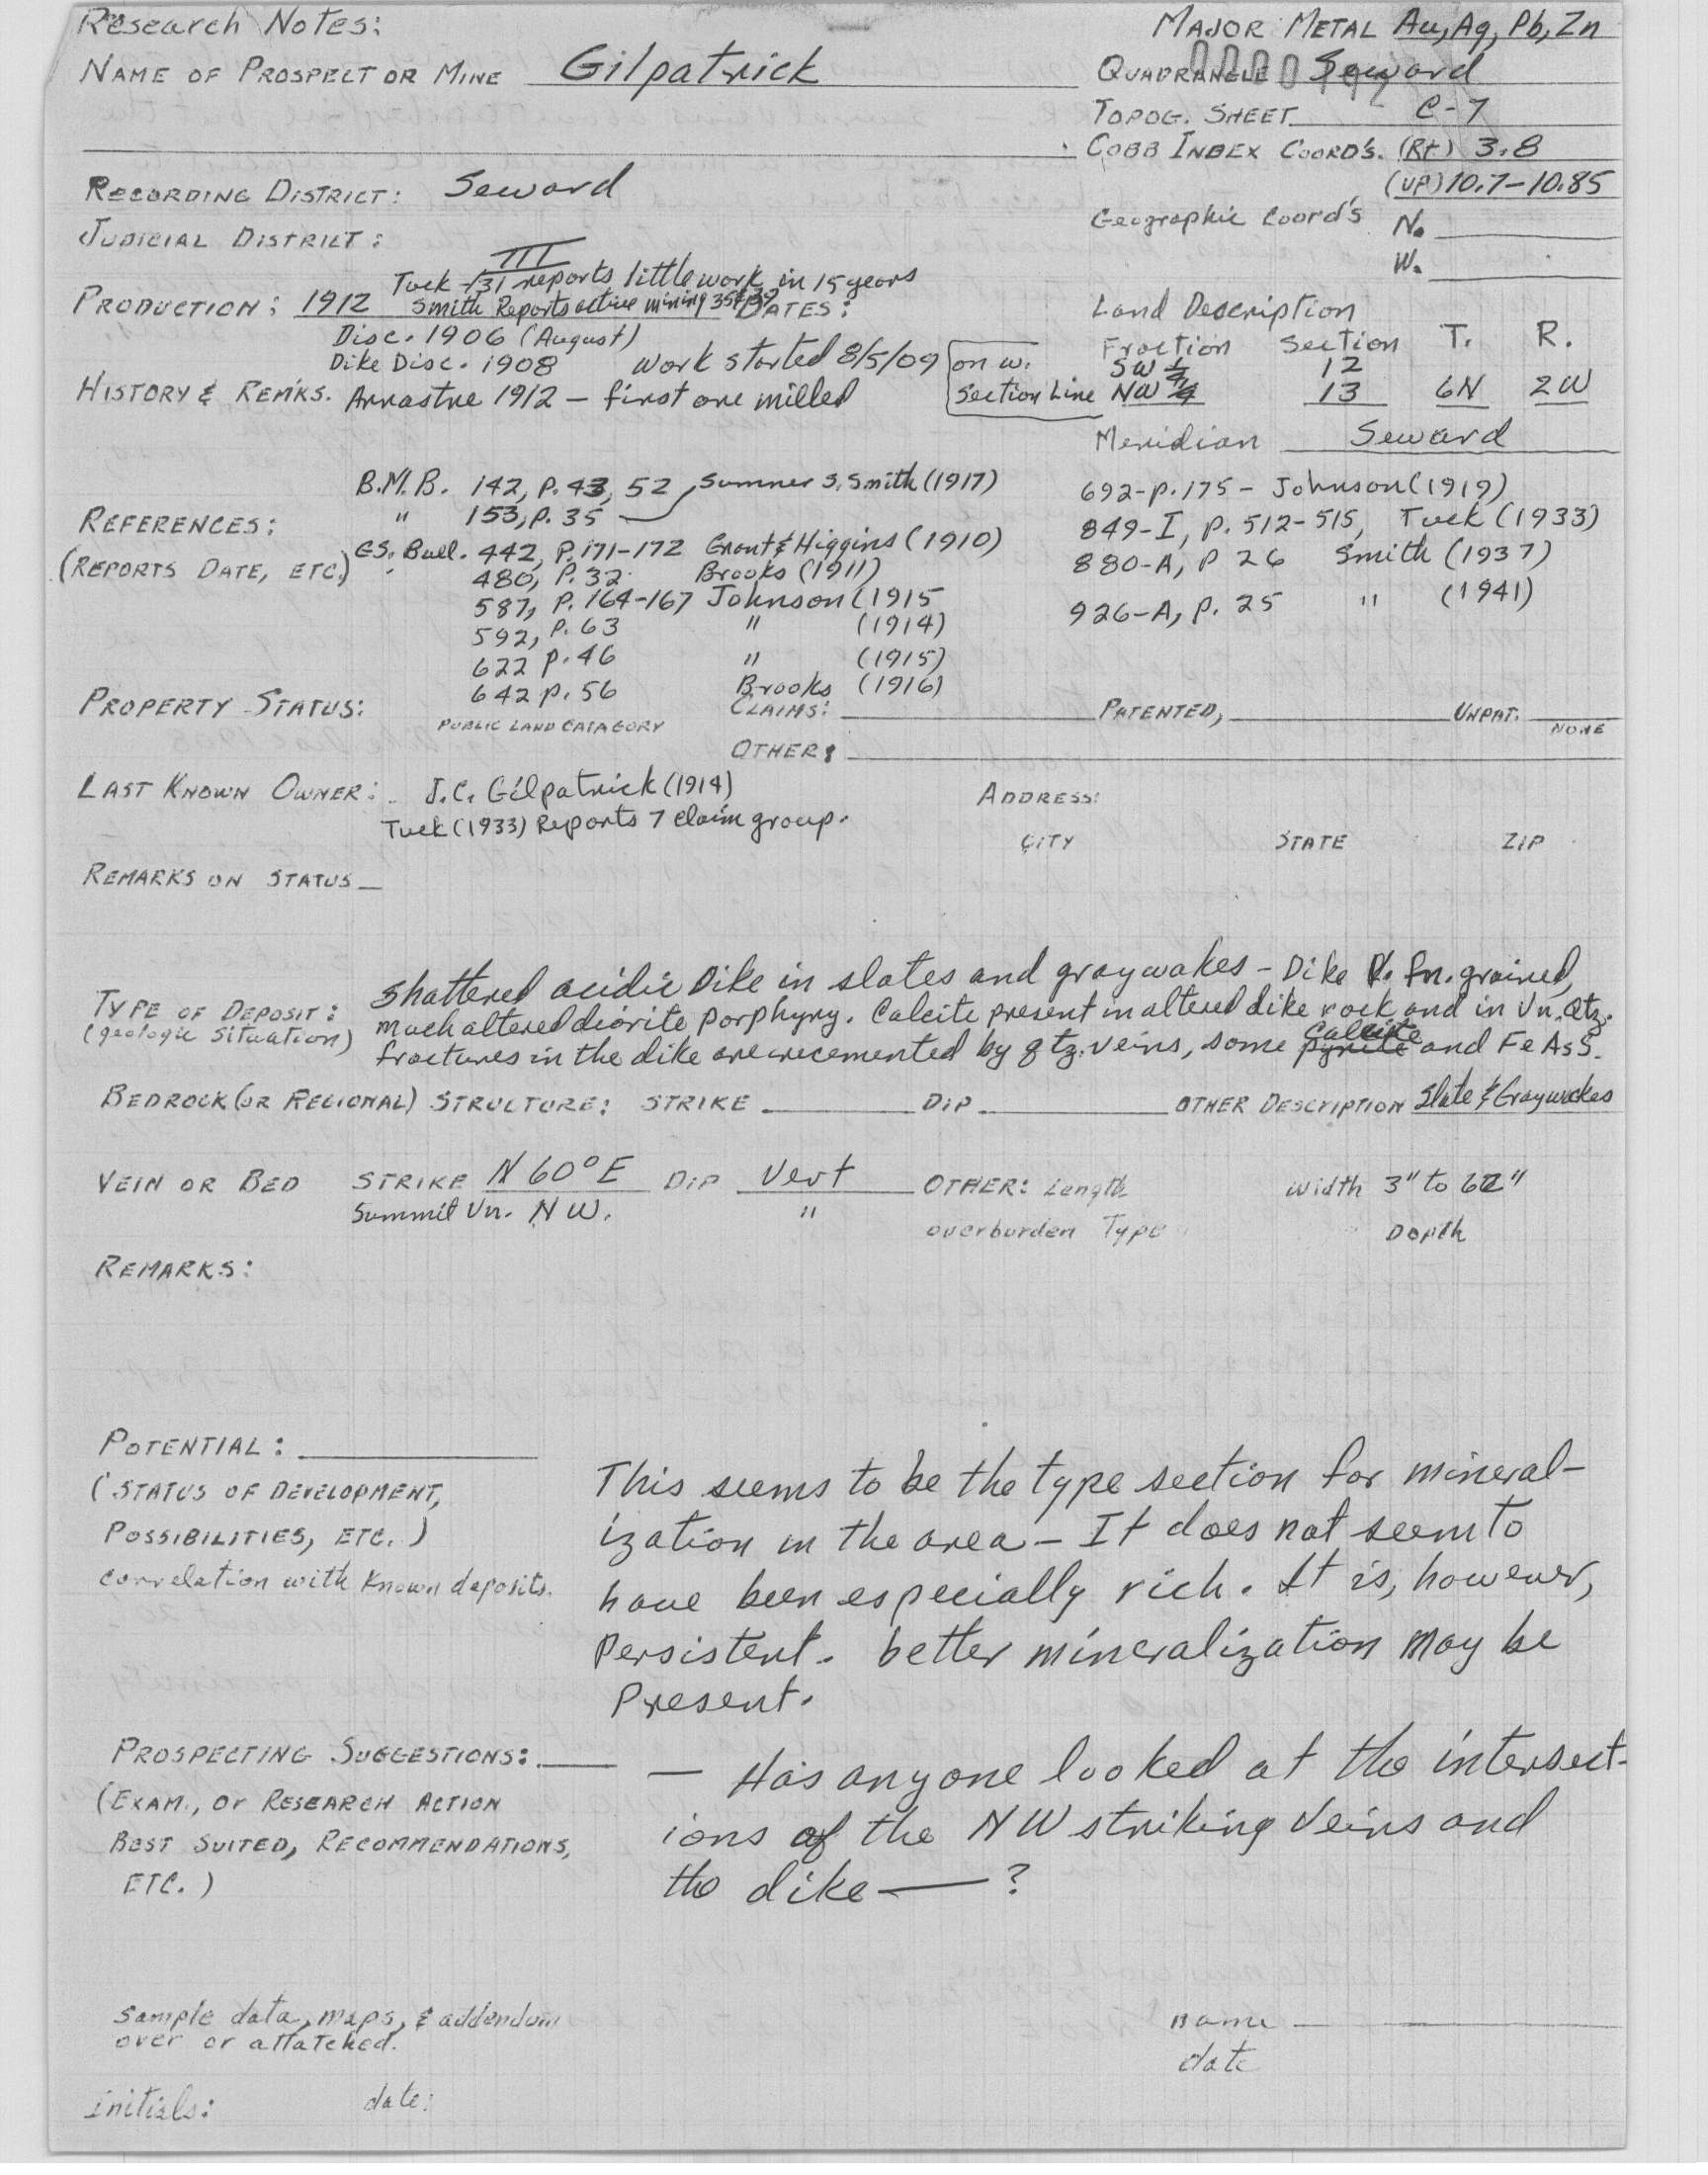 Research Notes:
MAJOR METAL Au, Ag, Pb, Zn
NAME OF PROSPECT OR MINE Gilpatrick
QUADRANGLE Seward
TOPOG. SHEET C-7
COBB INDEX COORD'S. (Rt) 3.8
(UP) 10.7-10.85
RECORDING DISTRICT: Seward
Geographic Coord's N.
W.
JUDICIAL DISTRICT: III
Tuck -/31 reports little work in 15 years
PRODUCTION: 1912 Smith Reports active mining DATES:
Disc. 1906 (August)
Dike Disc. 1908 Work started 8/5/09
HISTORY & REMKS. Arrastre 1912 - first ore milled
Land Description
Fraction Section T. R.
on W. SW 1/4 12
Section Line NW 1/4 13 6N 2W
Meridian Seward
REFERENCES:
(REPORTS DATE, ETC.)
B.M.B. 142, P. 43, 52, Sumner S. Smith (1917)
" 153, P. 35
GS. Bull. 442, P. 171-172 Grant & Higgins (1910)
480, P. 32 Brooks (1911)
587, P. 164-167 Johnson (1915
592, P. 63 " (1914)
622 P. 46 " (1915)
642 P. 56 Brooks (1916)
692-P. 175 - Johnson (1919)
849-I, P. 512-515, Tuck (1933)
880-A, P 26 Smith (1937)
926-A, P. 25 " (1941)
PROPERTY STATUS:
PUBLIC LAND CATAGORY
CLAIMS: PATENTED, UNPAT.
NONE
OTHER:
LAST KNOWN OWNER: J.C. Gilpatrick (1914)
Tuck (1933) Reports 7 claim group.
ADDRESS:
CITY STATE ZIP
REMARKS ON STATUS
TYPE OF DEPOSIT:
(geologic situation)
Shattered acidic Dike in slates and graywakes - Dike V. fn. grained,
much altered diorite porphyry. Calcite present in altered dike rock and in Vn. Qtz.
fractures in the dike are recemented by qtz. veins, some pyrite calcite and FeAsS.
BEDROCK (OR REGIONAL) STRUCTURE: STRIKE DIP OTHER DESCRIPTION Slate & Graywackes
VEIN OR BED STRIKE N 60° E DIP Vert OTHER: Length Width 3" to 62"
Summit Vn. NW. " overburden Type Depth
REMARKS:
POTENTIAL:
(STATUS OF DEVELOPMENT,
POSSIBILITIES, ETC.)
correlation with known deposits.
This seems to be the type section for mineral-
ization in the area - It does not seem to
have been especially rich. It is, however,
Persistent. better mineralization may be
Present.
PROSPECTING SUGGESTIONS:
(EXAM., or RESEARCH ACTION
BEST SUITED, RECOMMENDATIONS,
ETC.)
- Has anyone looked at the intersect-
ions of the NW striking Veins and
the dike — ?
Sample data, maps, & addendum
over or attatched.
name
date
initials: date: